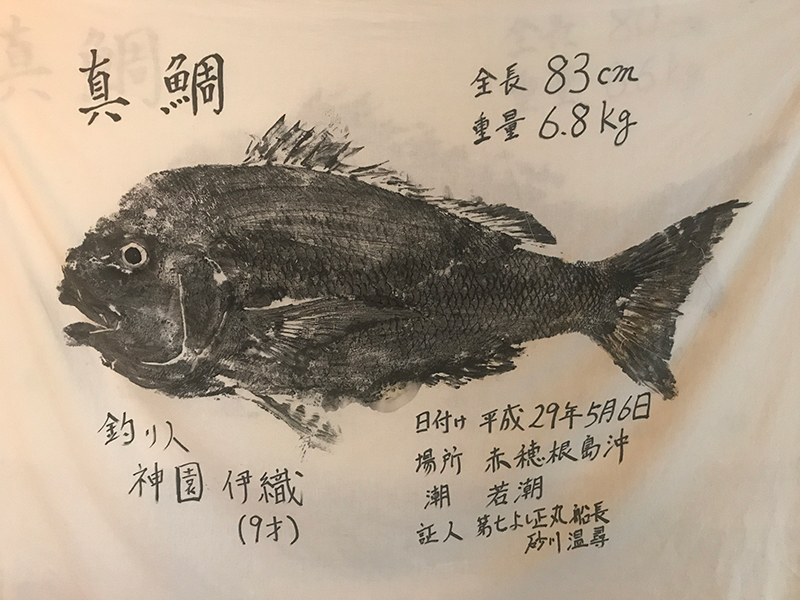 真鯛
全長 83cm
重量 6.8kg
釣り人
神園 伊織
(9才)
日付け 平成29年5月6日
場所 赤穂根島沖
潮 若潮
証人 第七よし正丸 船長
砂川温尋